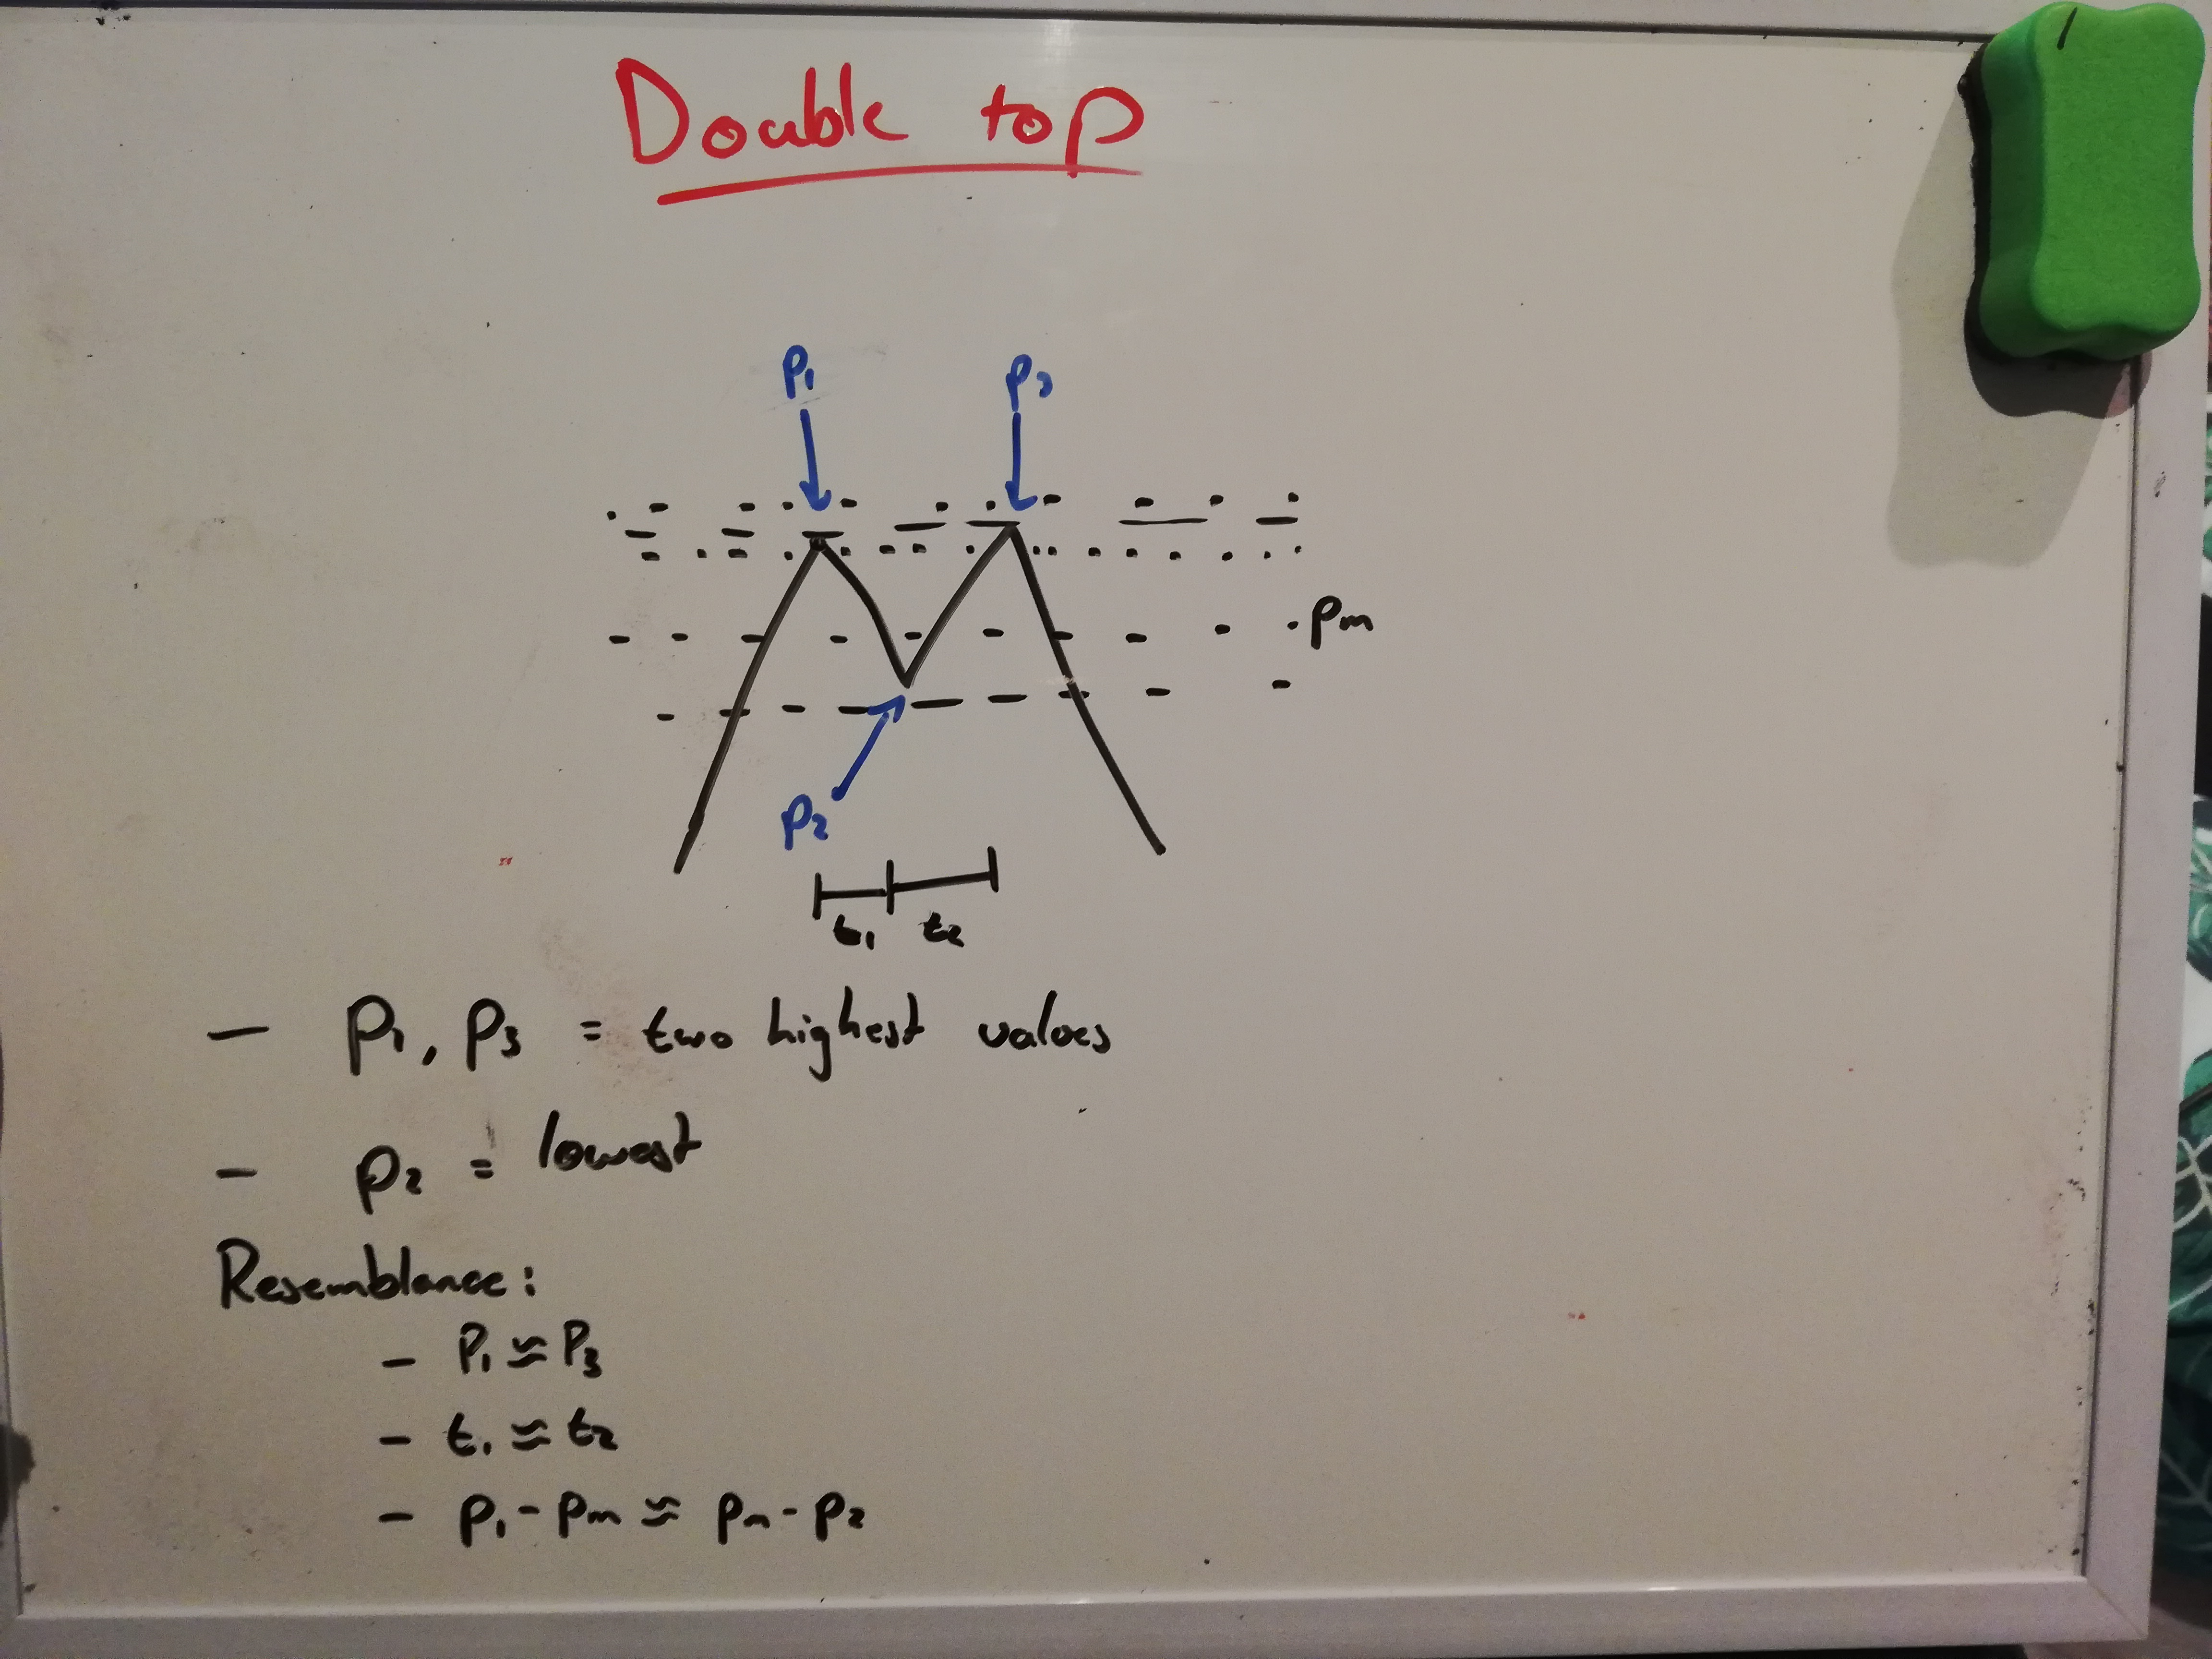 Double top
P1 P3
Pm
P2
t1 t2
- P1, P3 = two highest values
- P2 = lowest
Resemblance:
- P1 ≈ P3
- t1 ≈ t2
- P1 - Pm ≈ Pm - P2